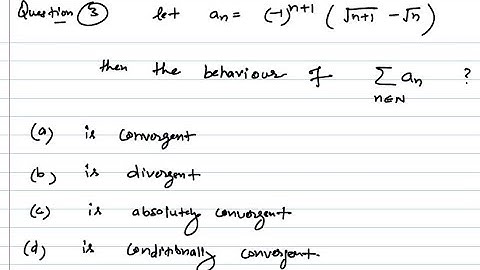 Question ③ let aₙ = (-1)ⁿ⁺¹ (√n+1 - √n)
then the behaviour of ∑ aₙ ?
n∈N
(a) is convergent
(b) is divergent
(c) is absolutely convergent
(d) is conditionally convergent.